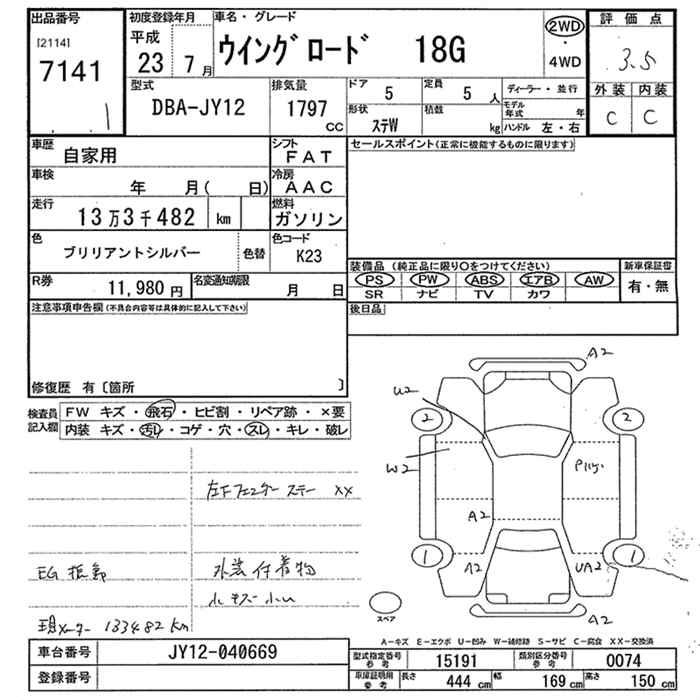 出品番号
[2114]
7141
1
初度登録年月
平成
23 7月
車名・グレード
ウイングロード 18G
2WD
・
4WD
評価点
3.5
外装 内装
C C
型式
DBA-JY12
排気量
1797
cc
ドア
5
定員
5 人
形状
ステW
積載
kg
ディーラー・並行
モデル年式 年
ハンドル 左・右
車歴
自家用
シフト
FAT
車検
年 月( 日)
冷房
AAC
走行
13万3千482 km
燃料
ガソリン
色
ブリリアントシルバー
色替
色コード
K23
R券
11,980 円
名変通知期限
月 日
セールスポイント(正常に機能するものに限ります)
装備品 (純正品に限り○をつけてください)
PS PW ABS エアB AW
SR ナビ TV カワ
新車保証書
有・無
後日品
注意事項申告欄(不具合内容等は具体的に記入して下さい)
修復歴 有〔箇所 〕
検査員記入欄
FW キズ・飛石・ヒビ割・リペア跡・×要
内装 キズ・汚レ・コゲ・穴・スレ・キレ・破レ
左下フェンダーステー XX
水染付着物
小キズ小凹
現メーター 133482km
A2
U2
2
2
W2
A2
1
1
A2
UA2
A2
スペア
A-キズ E-エクボ U-凹み W-補修跡 S-サビ C-腐食 XX-交換済
車台番号
JY12-040669
登録番号
型式指定番号
参考
15191
類別区分番号
参考
0074
車庫証明用
参考
長さ 444 cm
幅 169 cm
高さ 150 cm